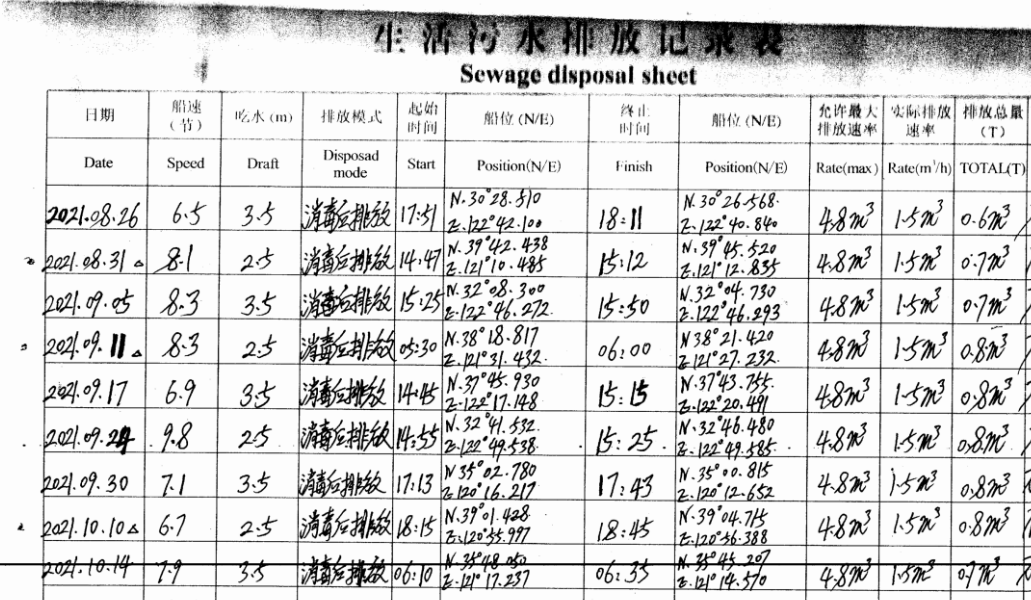 生活污水排放记录表
Sewage disposal sheet
日期 船速（节） 吃水 (m) 排放模式 起始时间 船位 (N/E) 终止时间 船位 (N/E) 允许最大排放速率 实际排放速率 排放总量（T）
Date Speed Draft Disposad mode Start Position(N/E) Finish Position(N/E) Rate(max) Rate(m³/h) TOTAL(T)
2021.08.26 6.5 3.5 消毒后排放 17:51 N.30°28.510 E.122°42.100 18:11 N.30°26.568 E.122°40.840 4.8m³ 1.5m³ 0.6m³
2021.08.31 △ 8.1 2.5 消毒后排放 14:47 N.39°42.438 E.121°10.485 15:12 N.39°45.520 E.121°12.835 4.8m³ 1.5m³ 0.7m³
2021.09.05 8.3 3.5 消毒后排放 15:25 N.32°08.300 E.122°46.272 15:50 N.32°04.730 E.122°46.293 4.8m³ 1.5m³ 0.7m³
2021.09.11 △ 8.3 2.5 消毒后排放 05:30 N.38°18.817 E.121°31.432 06:00 N38°21.420 E.121°27.232 4.8m³ 1.5m³ 0.8m³
2021.09.17 6.9 3.5 消毒后排放 14:45 N.37°45.930 E.122°17.148 15:15 N.37°43.755 E.122°20.491 4.8m³ 1.5m³ 0.8m³
2021.09.24 9.8 2.5 消毒后排放 14:55 N.32°41.532 E.122°49.538 15:25 N.32°46.480 E.122°49.585 4.8m³ 1.5m³ 0.8m³
2021.09.30 7.1 3.5 消毒后排放 17:13 N 35°02.780 E 120°16.217 17:43 N.35°00.815 E.120°12.652 4.8m³ 1.5m³ 0.8m³
2021.10.10 △ 6.7 2.5 消毒后排放 18:15 N.39°01.428 E.120°55.997 18:45 N.39°04.715 E.120°56.388 4.8m³ 1.5m³ 0.8m³
2021.10.14 7.9 3.5 消毒后排放 06:10 N.35°48.050 E.121°17.237 06:35 N.35°45.207 E.121°14.570 4.8m³ 1.5m³ 0.7m³